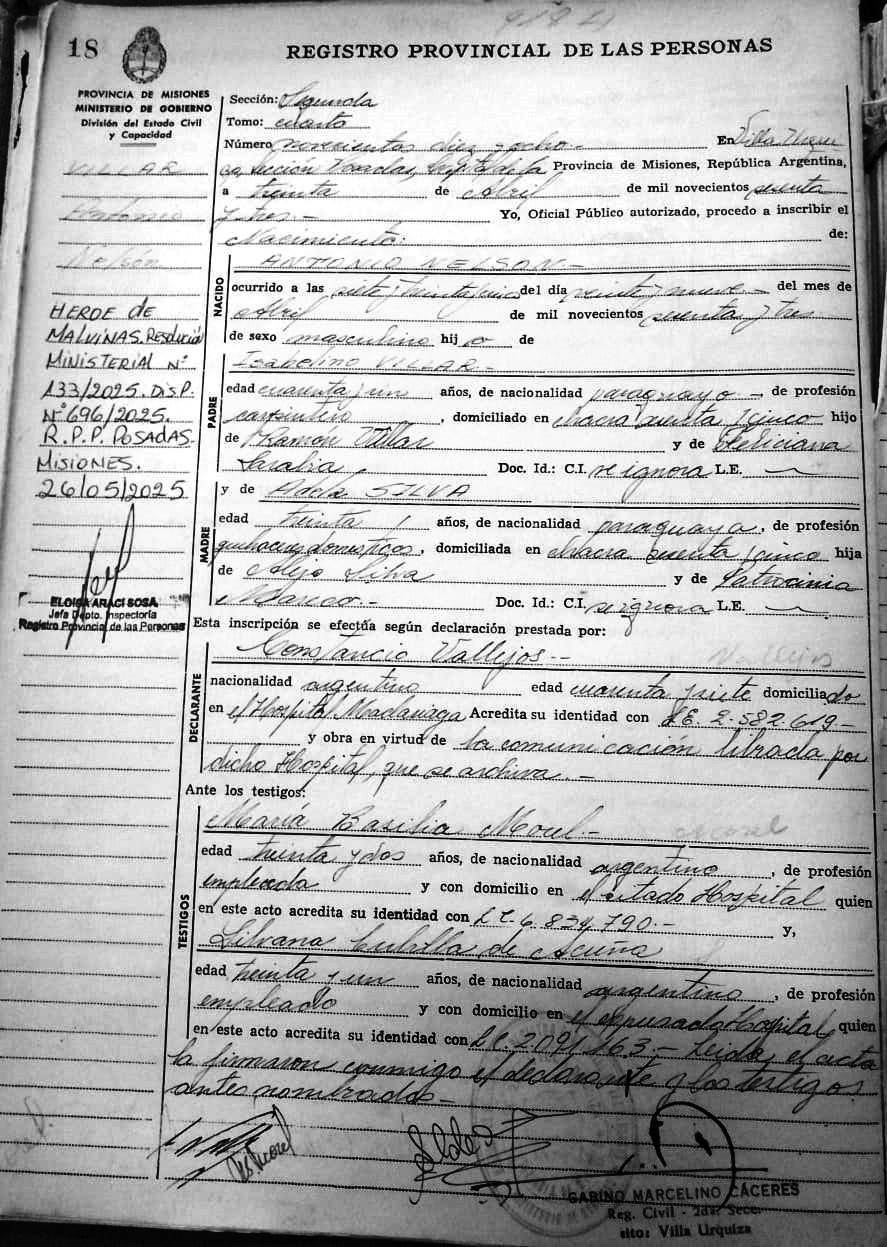 18
REGISTRO PROVINCIAL DE LAS PERSONAS
PROVINCIA DE MISIONES
MINISTERIO DE GOBIERNO
División del Estado Civil
y Capacidad
VILLAR
Antonio
Nelson
HEROE de
MALVINAS. Resolución
MINISTERIAL Nº
133/2025. DISP.
Nº 696/2025.
R.P.P. POSADAS
MISIONES.
26/05/2025
ELOISA ARACI SOSA
Jefa Dpto. Inspectoría
Registro Provincial de las Personas
Sección: Segunda
Tomo: cuarto
Número novecientos diez y ocho.- En Villa Urqui
za, sección Posadas, Capital de la Provincia de Misiones, República Argentina,
a treinta de Abril de mil novecientos sesenta
y tres.- Yo, Oficial Público autorizado, procedo a inscribir el
Nacimiento: de:
NACIDO
ANTONIO NELSON.-
ocurrido a las siete y treinta y cinco del día veinte y nueve.- del mes de
Abril de mil novecientos sesenta y tres
de sexo masculino hijo de
PADRE
Isabelino VILLAR.-
edad cuarenta y un años, de nacionalidad paraguayo.-, de profesión
carpintero, domiciliado en chacra sesenta y cinco hijo
de Ramón Villar y de Feliciana
Sarabia, Doc. Id.: C.I. se ignora L.E.
MADRE
y de Adda SILVA
edad treinta años, de nacionalidad paraguaya, de profesión
quehaceres domésticos, domiciliada en chacra sesenta y cinco hija
de Alejo Silva y de Patrocinia
Doc. Id.: C.I. se ignora L.E.
Esta inscripción se efectúa según declaración prestada por:
DECLARANTE
Constancio Vallejos.-
nacionalidad argentino edad cuarenta y siete domiciliado
en el Hospital Madariaga Acredita su identidad con L.E. 2.582.619.-
y obra en virtud de la comunicación librada por
dicho Hospital, que se archiva.-
Ante los testigos:
TESTIGOS
María Basilia Morel.- Morel
edad treinta y dos años, de nacionalidad argentino, de profesión
empleada y con domicilio en el citado Hospital quien
en este acto acredita su identidad con L.C. 6.834.790.- y,
Silvana Cubilla de Acuña
edad treinta y un años, de nacionalidad argentino, de profesión
empleado y con domicilio en el expresado Hospital quien
en este acto acredita su identidad con L.C. 2.091.163.- Leída el acta
la firmaron conmigo el declarante y los testigos
antes nombrados.-
GABINO MARCELINO CÁCERES
Reg. Civil - 2da. Secc.
sito: Villa Urquiza